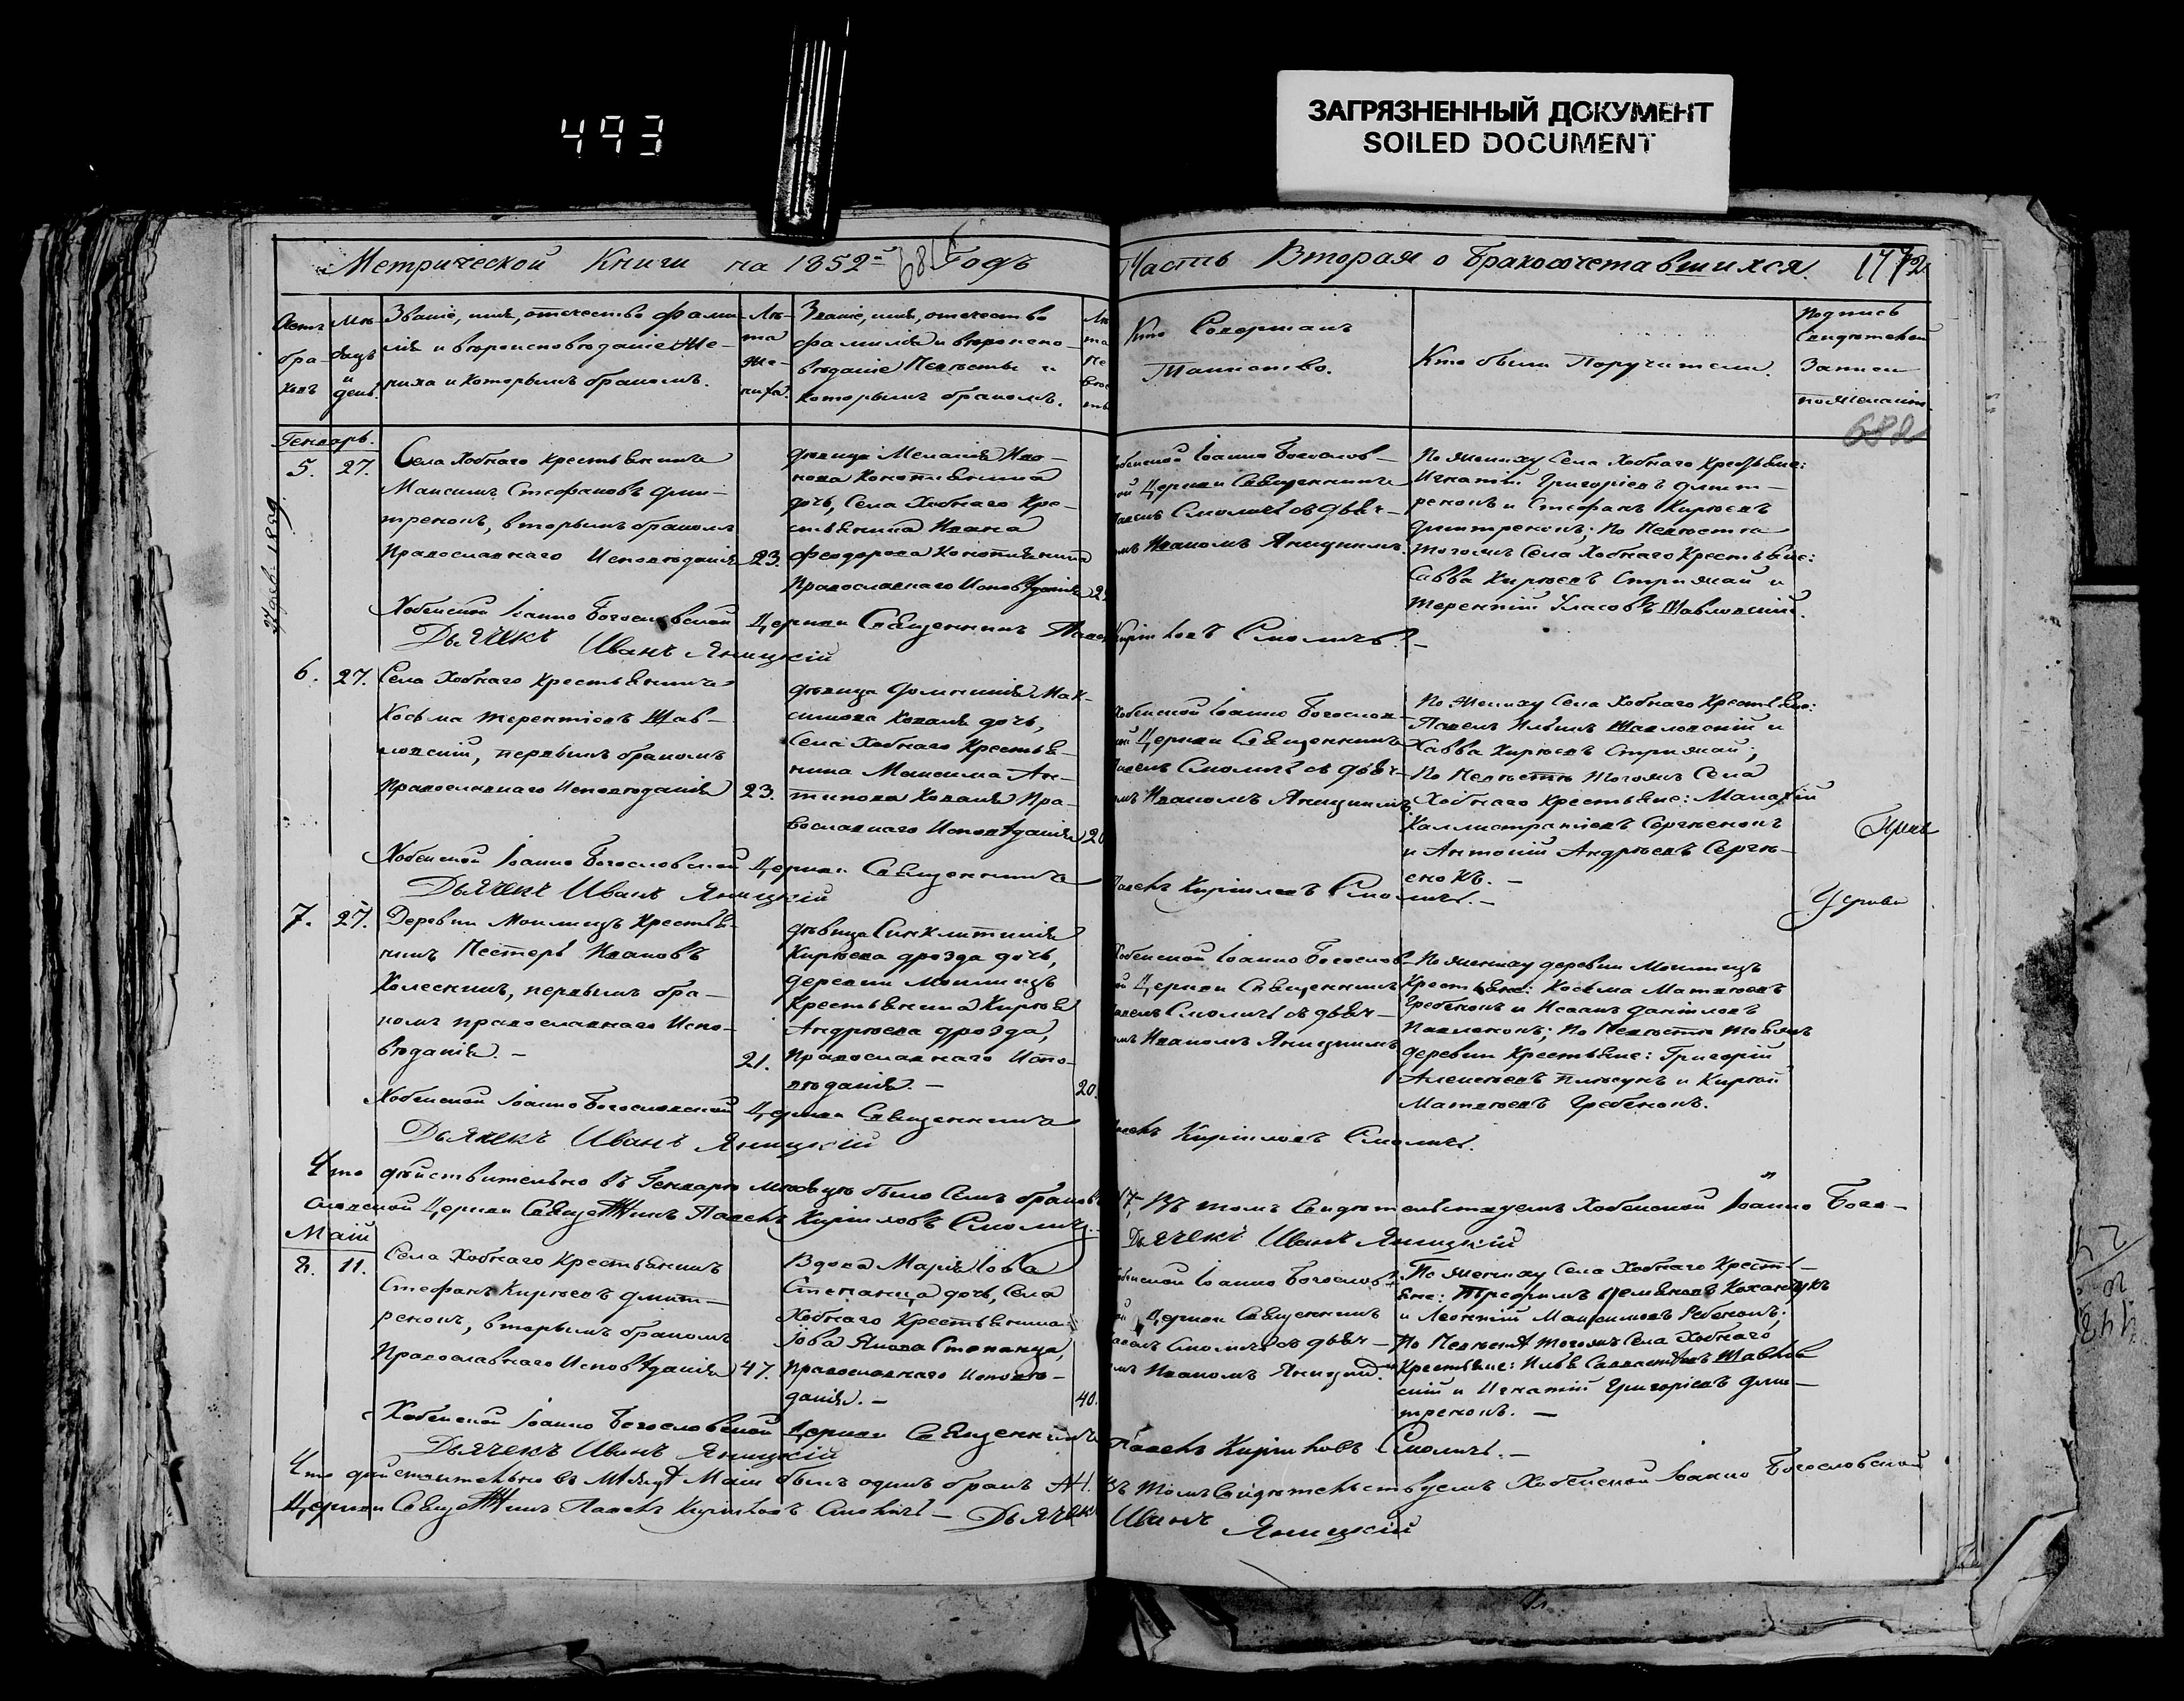 493
ЗАГРЯЗНЕННЫЙ ДОКУМЕНТ
SOILED DOCUMENT
Метрической Книги на 1852й Годъ
Часть Вторая о Бракосочетавшихся.
Счетъ браковъ
Мѣсяцъ и день.
Званіе, имя, отчество фами-
лія и вѣроисповѣданіе Же-
ниха и которымъ бракомъ.
Лѣ-
та
же-
ниха.
Званіе, имя, отчество
фамилія и вѣроиспо-
вѣданіе Невѣсты и
которымъ бракомъ.
Лѣ
та
Не
вѣс
ты
Кто Совершалъ
Таинство.
Кто были Поручители.
Подпись
Свидѣтелей
Записи
по желанію.
682
Генварь.
5. 27.
Села Хобнаго крестьянинъ
Максимъ Стефановъ Дми-
тренокъ, вторымъ бракомъ
Православнаго Исповѣданія
23.
дѣвица Меланія Ива-
нова Конопляника
дочь, Села Хобнаго Кре-
стьянина Ивана
Феодорова Конопляника
Православнаго Исповѣданія
Хобенской Іоанно Богослов-
ой Церкви Священникъ
Павелъ Смоличъ съ дьяч-
мъ Иваномъ Яницкимъ.
По жениху Села Хобнаго Крестьяне:
Игнатій Григоріевъ Дмит-
ренокъ и Стефанъ Кирѣевъ
Дмитренокъ; По Невѣстѣ
тогожъ Села Хобнаго Крестьяне:
Савва Кирѣевъ Стрижай и
Терентій Власовъ Шавловскій.
Хобенской Іоанно Богословской Церкви Священникъ Павелъ Кириловъ Смоличъ. -
Дьячекъ Иванъ Яницкій
6. 27.
Села Хобнаго Крестьянинъ
Косьма Терентіевъ Шав-
ловскій, первымъ бракомъ
Православнаго Исповѣданія
23.
дѣвица Домникія Мак-
симова Коваля дочь,
Села Хобнаго Крестья-
нина Максима Ан-
типова Коваля Пра-
вославнаго Исповѣданія
20
Хобенской Іоанно Богослов-
ой Церкви Священникъ
Павелъ Смоличъ съ дьяч-
мъ Иваномъ Яницкимъ.
По Жениху Села Хобнаго Крестьяне:
Павелъ Ильинъ Шавловскій и
Савва Кирѣевъ Стрижай;
По Невѣстѣ тогожъ Села
Хобнаго Крестьяне:
Каллистратіевъ Сергѣенокъ
и Антоній Андрѣевъ Сергѣ-
енокъ. -
Хобенской Іоанно Богословской Церкви Священникъ
Павелъ Кириловъ Смоличъ. -
Дьячекъ Иванъ Яницкій
7. 27.
Деревни Моклищъ Крестья-
нинъ Нестеръ Ивановъ
Колесникъ, первымъ бра-
комъ православнаго Испо-
вѣданія. -
21.
дѣвица Синклитикія
Кирѣева Дрозда дочь,
деревни Моклищъ
Крестьянина Кирѣя
Андрѣева Дрозда,
Православнаго Испо-
вѣданія. -
20.
Хобенской Іоанно Богослов-
ой Церкви Священникъ
Павелъ Смоличъ съ дьяч-
мъ Иваномъ Яницкимъ
По Жениху деревни Моклищъ
Крестьяне: Косьма Матвѣевъ
Гребенокъ и Исаакъ Даніиловъ
Павленокъ; По Невѣстѣ тоейжъ
деревни Крестьяне: Григорій
Алексѣевъ Плюсунъ и Кирѣй
Матвѣевъ Гребенокъ.
Хобенской Іоанно Богословской Церкви Священникъ
Павелъ Кириловъ Смоличъ.
Дьячекъ Иванъ Яницкій
Что дѣйствительно въ Генварѣ мѣсяцѣ было Семь браковъ №7, Въ томъ Свидѣтельствуемъ Хобенской Іоанно Бого-
словской Церкви Священникъ Павелъ Кириловъ Смоличъ. - Дьячекъ Иванъ Яницкій
Май
8. 11.
Села Хобнаго Крестьянинъ
Стефанъ Кирѣевъ Дмит-
ренокъ, вторымъ бракомъ
Православнаго Исповѣданія
47.
Вдова Марія Іова
Степанца дочь, Села
Хобнаго Крестьянина
Іова Яковa Степанца,
Православнаго Исповѣ-
данія. -
40.
Хобенской Іоанно Богослов-
ой Церкви Священникъ
Павелъ Смоличъ съ дьяч-
мъ Иваномъ Яницкимъ
По Жениху Села Хобнаго Кресть-
яне: Трофимъ
и Леонтій Максимовъ Рѣбенокъ;
По Невѣстѣ тогожъ Села Хобнаго
Крестьяне: Илья
скій и Игнатій Григоріевъ Дми-
тренокъ. -
Хобенской Іоанно Богословской Церкви Священникъ Павелъ Кириловъ Смоличъ. -
Дьячекъ Иванъ Яницкій
Что дѣйствительно въ Мѣсяцѣ Маіи былъ одинъ бракъ №1. Въ томъ Свидѣтельствуемъ Хобенской Іоанно Богословской
Церкви Священникъ Павелъ Кириловъ Смоличъ - Дьячекъ Иванъ Яницкій